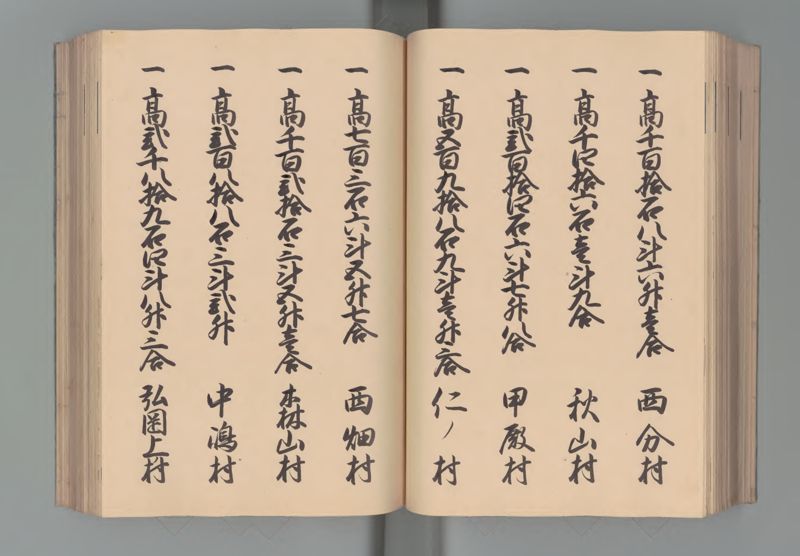 一 高千百拾石八斗六升壹合 西分村
一 高千四拾六石壹斗九合 秋山村
一 高弐百拾四石六斗七升八合 甲殿村
一 高五百九拾八石九斗壹升六合 仁ノ村
一 高七百三石六斗五升七合 西畑村
一 高千百弐拾石三斗五升壹合 森山村
一 高弐百八拾八石三斗弐升 中嶋村
一 高弐千八拾九石四斗八升三合 弘岡上村